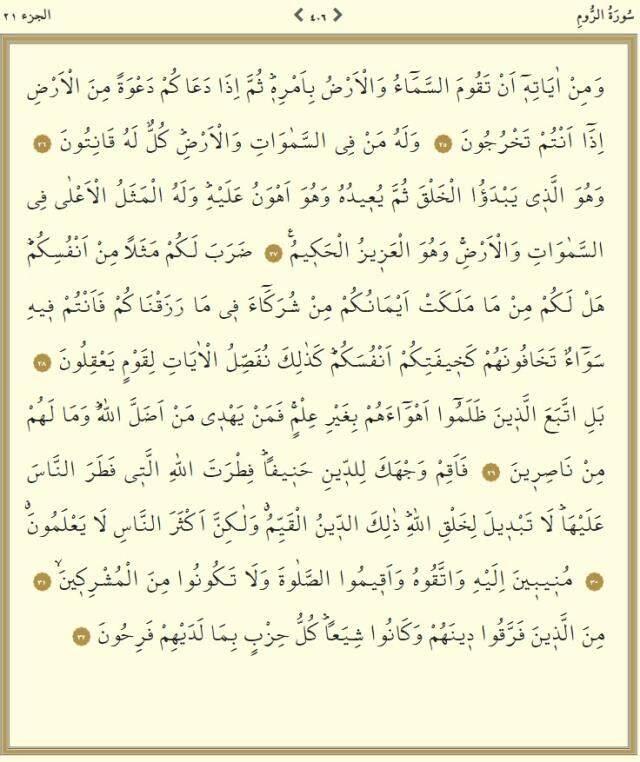 سُورَةُ الرُّومِ ٤٠٦ الجزء ٢١
وَمِنْ اٰيَاتِه۪ٓ اَنْ تَقُومَ السَّمَٓاءُ وَالْاَرْضُ بِاَمْرِه۪ۜ ثُمَّ اِذَا دَعَاكُمْ دَعْوَةً مِنَ الْاَرْضِ
اِذَٓا اَنْتُمْ تَخْرُجُونَ ٢٥ وَلَهُ مَنْ فِي السَّمٰوَاتِ وَالْاَرْضِۜ كُلٌّ لَهُ قَانِتُونَ ٢٦
وَهُوَ الَّذ۪ي يَبْدَؤُا الْخَلْقَ ثُمَّ يُع۪يدُهُ وَهُوَ اَهْوَنُ عَلَيْهِۜ وَلَهُ الْمَثَلُ الْاَعْلٰى فِي
السَّمٰوَاتِ وَالْاَرْضِۚ وَهُوَ الْعَز۪يزُ الْحَك۪يمُ۟ ٢٧ ضَرَبَ لَكُمْ مَثَلاً مِنْ اَنْفُسِكُمْۜ
هَلْ لَكُمْ مِنْ مَا مَلَكَتْ اَيْمَانُكُمْ مِنْ شُرَكَٓاءَ ف۪ي مَا رَزَقْنَاكُمْ فَاَنْتُمْ ف۪يهِ
سَوَٓاءٌ تَخَافُونَهُمْ كَخ۪يفَتِكُمْ اَنْفُسَكُمْۜ كَذٰلِكَ نُفَصِّلُ الْاٰيَاتِ لِقَوْمٍ يَعْقِلُونَ ٢٨
بَلِ اتَّبَعَ الَّذ۪ينَ ظَلَمُٓوا اَهْوَٓاءَهُمْ بِغَيْرِ عِلْمٍۚ فَمَنْ يَهْد۪ي مَنْ اَضَلَّ اللّٰهُۜ وَمَا لَهُمْ
مِنْ نَاصِر۪ينَ ٢٩ فَاَقِمْ وَجْهَكَ لِلدّ۪ينِ حَن۪يفاًۜ فِطْرَتَ اللّٰهِ الَّت۪ي فَطَرَ النَّاسَ
عَلَيْهَاۜ لَا تَبْد۪يلَ لِخَلْقِ اللّٰهِۜ ذٰلِكَ الدّ۪ينُ الْقَيِّمُۗ وَلٰكِنَّ اَكْثَرَ النَّاسِ لَا يَعْلَمُونَۗ
٣٠ مُن۪يب۪ينَ اِلَيْهِ وَاتَّقُوهُ وَاَق۪يمُوا الصَّلٰوةَ وَلَا تَكُونُوا مِنَ الْمُشْرِك۪ينَۙ ٣١
مِنَ الَّذ۪ينَ فَرَّقُوا د۪ينَهُمْ وَكَانُوا شِيَعاًۜ كُلُّ حِزْبٍ بِمَا لَدَيْهِمْ فَرِحُونَ ٣٢